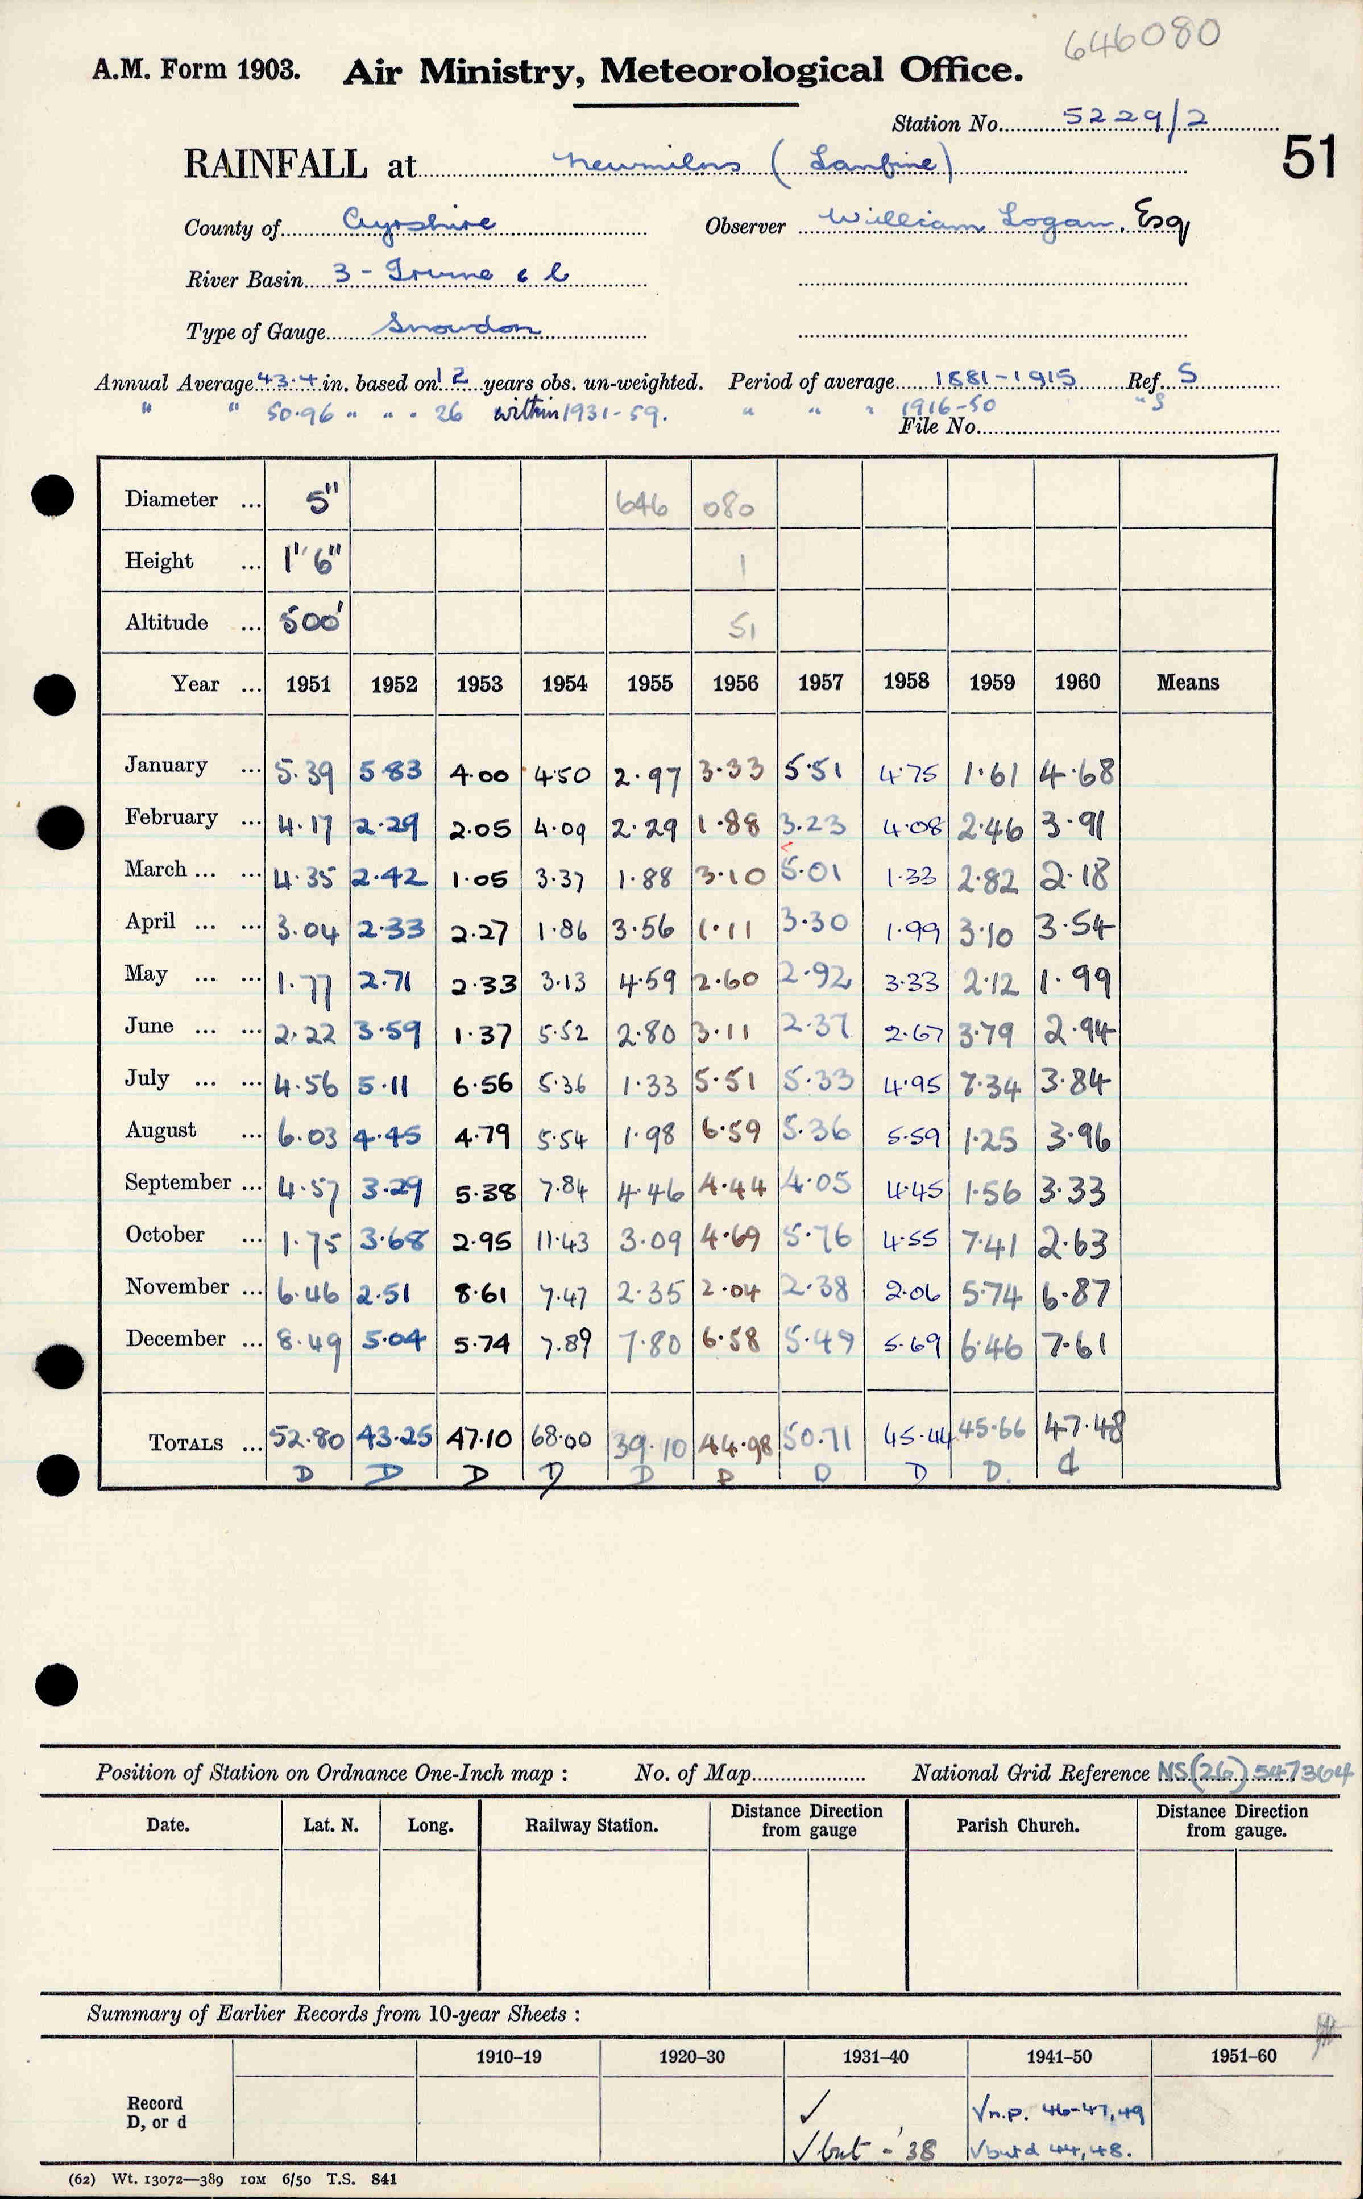 646080
A.M. Form 1903. Air Ministry, Meteorological Office.
Station No. 5229/2
51
RAINFALL at Newmilns (Lanfine)
County of Ayrshire Observer William Logan, Esq
River Basin 3 - Irvine & C
Type of Gauge Snowdon
Annual Average 43.4 in. based on 12 years obs. un-weighted. Period of average 1881-1915 Ref. S
" " 50.96 " " " 26 within 1931-59. " " " 1916-50 " S
File No.
Diameter ... 5" 646 080
Height ... 1' 6" 1
Altitude ... 500' 51
Year ... 1951 1952 1953 1954 1955 1956 1957 1958 1959 1960 Means
January ... 5.39 5.83 4.00 4.50 2.97 3.33 5.51 4.75 1.61 4.68
February ... 4.17 2.29 2.05 4.09 2.29 1.88 3.23 4.08 2.46 3.91
March ... ... 4.35 2.42 1.05 3.37 1.88 3.10 5.01 1.33 2.82 2.18
April ... ... 3.04 2.33 2.27 1.86 3.56 1.11 3.30 1.99 3.10 3.54
May ... ... 1.77 2.71 2.33 3.13 4.59 2.60 2.92 3.33 2.12 1.99
June ... ... 2.22 3.59 1.37 5.52 2.80 3.11 2.37 2.67 3.79 2.94
July ... ... 4.56 5.11 6.56 5.36 1.33 5.51 5.33 4.95 7.34 3.84
August ... 6.03 4.45 4.79 5.54 1.98 6.59 5.36 5.59 1.25 3.96
September ... 4.57 3.29 5.38 7.84 4.46 4.44 4.05 4.45 1.56 3.33
October ... 1.75 3.68 2.95 11.43 3.09 4.69 5.76 4.55 7.41 2.63
November ... 6.46 2.51 8.61 7.47 2.35 2.04 2.38 2.06 5.74 6.87
December ... 8.49 5.04 5.74 7.89 7.80 6.58 5.49 5.69 6.46 7.61
TOTALS ... 52.80 43.25 47.10 68.00 39.10 44.98 50.71 45.44 45.66 47.48
D D D D D D D D D. d
Position of Station on Ordnance One-Inch map : No. of Map National Grid Reference NS(26) 547364
Date. Lat. N. Long. Railway Station. Distance Direction from gauge Parish Church. Distance Direction from gauge.
Summary of Earlier Records from 10-year Sheets :
1910–19 1920–30 1931–40 1941–50 1951–60
Record ✓ √n.p. 46-47,49
D, or d √ but - '38 √ but d 44,48.
(62) Wt. 13072—389 10M 6/50 T.S. 841